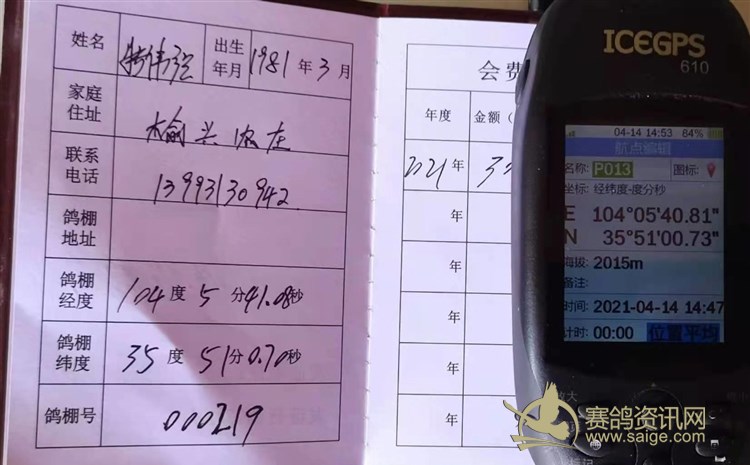 姓名 韩伟强 出生年月 1981 年 3 月
家庭住址 榆兴农庄
联系电话 13993130942
鸽棚地址
鸽棚经度 104 度 5 分 41.08 秒
鸽棚纬度 35 度 51 分 0.70 秒
鸽棚号 000219
会费
年度 金额（
2021 年 3
年
年
年
年
年
ICEGPS
610
04-14 14:53 84%
航点编辑
名称: P013 图标:
坐标: 经纬度-度分秒
E 104°05'40.81"
N 35°51'00.73"
海拔: 2015m
备注:
时间: 2021-04-14 14:47
计时: 00:00 位置平均
放大
赛鸽资讯网
www.saige.com